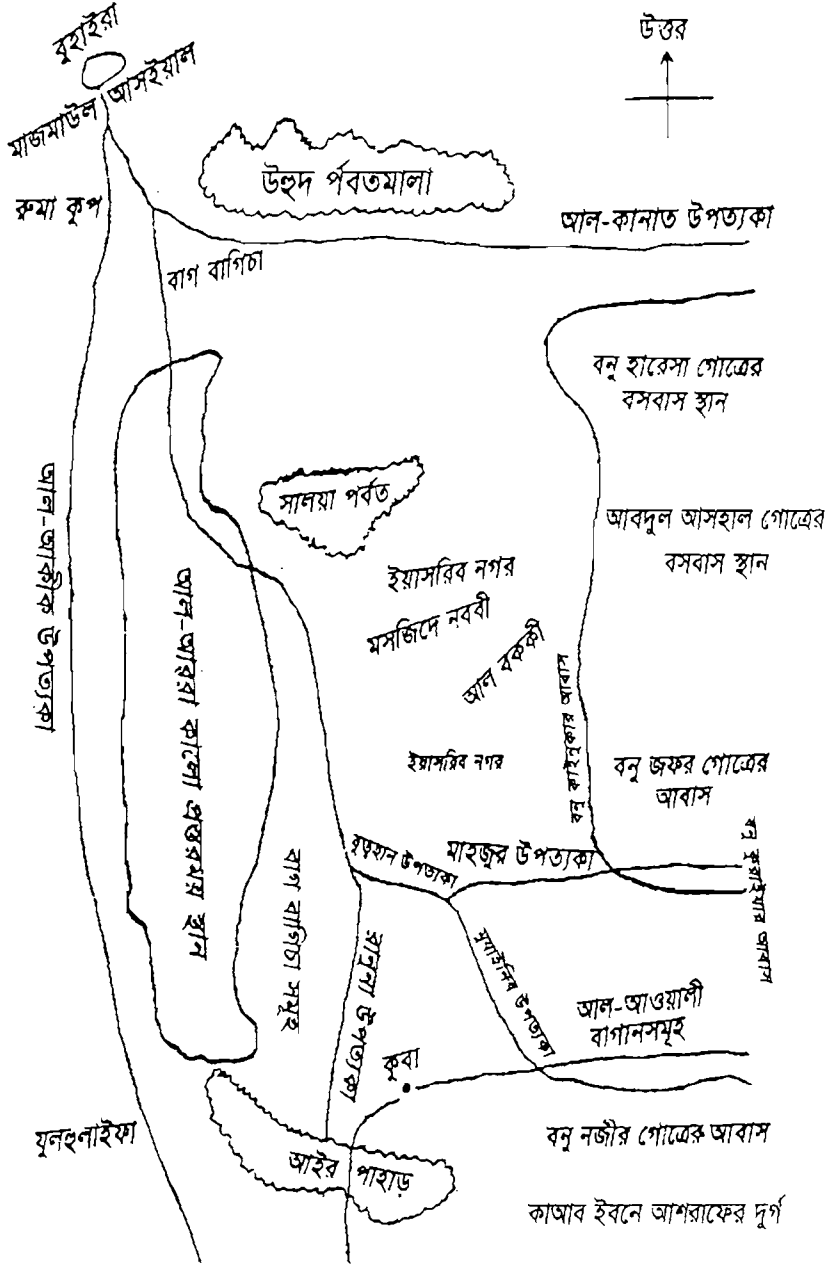 বুহাইরা
উত্তর
মাজমাউল আসইয়াল
উহুদ র্পবতমালা
রুমা কূপ
আল-কানাত উপত্যকা
বাগ বাগিচা
বনু হারেসা গোত্রের
বসবাস স্থান
সালয়া পর্বত
আবদুল আসহাল গোত্রের
বসবাস স্থান
আল-আকীক উপত্যকা
ইয়াসরিব নগর
মসজিদে নববী
আল বককী
আল-আররা কালো প্রস্তরময় স্থান
বনু কাইনুকার আবাস
ইয়াসরিব নগর
বনু জফর গোত্রের
আবাস
বুতহান উপত্যকা
মাহজুর উপত্যকা
বনু কুরাইযার আবাস
বাগ বাগিচা সমূহ
রানুনা উপত্যকা
মুযাইনিব উপত্যকা
আল-আওয়ালী
বাগানসমূহ
কুবা
যুলহুলাইফা
আইর পাহাড়
বনু নজীর গোত্রের আবাস
কাআব ইবনে আশরাফের দুর্গ